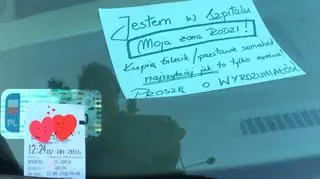 Jestem w Szpitalu
(Moja żona RODZI!
Kupię bilecik/przestawię samochód
najszybciej jak to tylko możliwe!
PROSZĘ O WYROZUMIAŁOŚĆ
PL
12:24